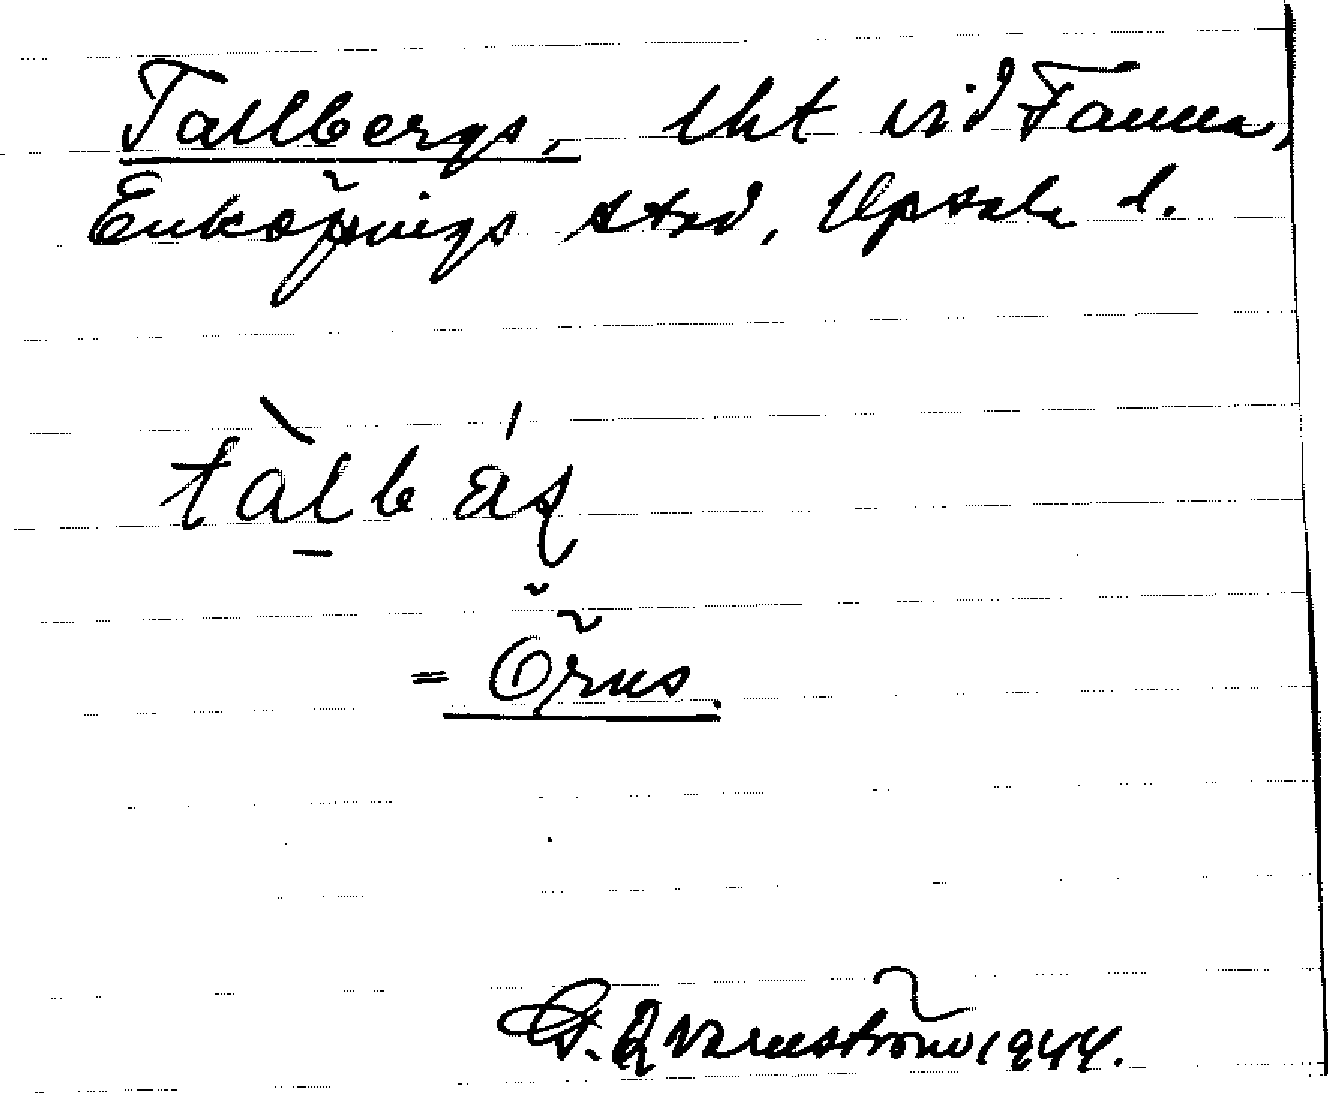 Tallbergs, lht vid Fanna,
Enköpings stad, Upsala l.
tàlbáʂ
= Örns
G. Qvarnström 1944.